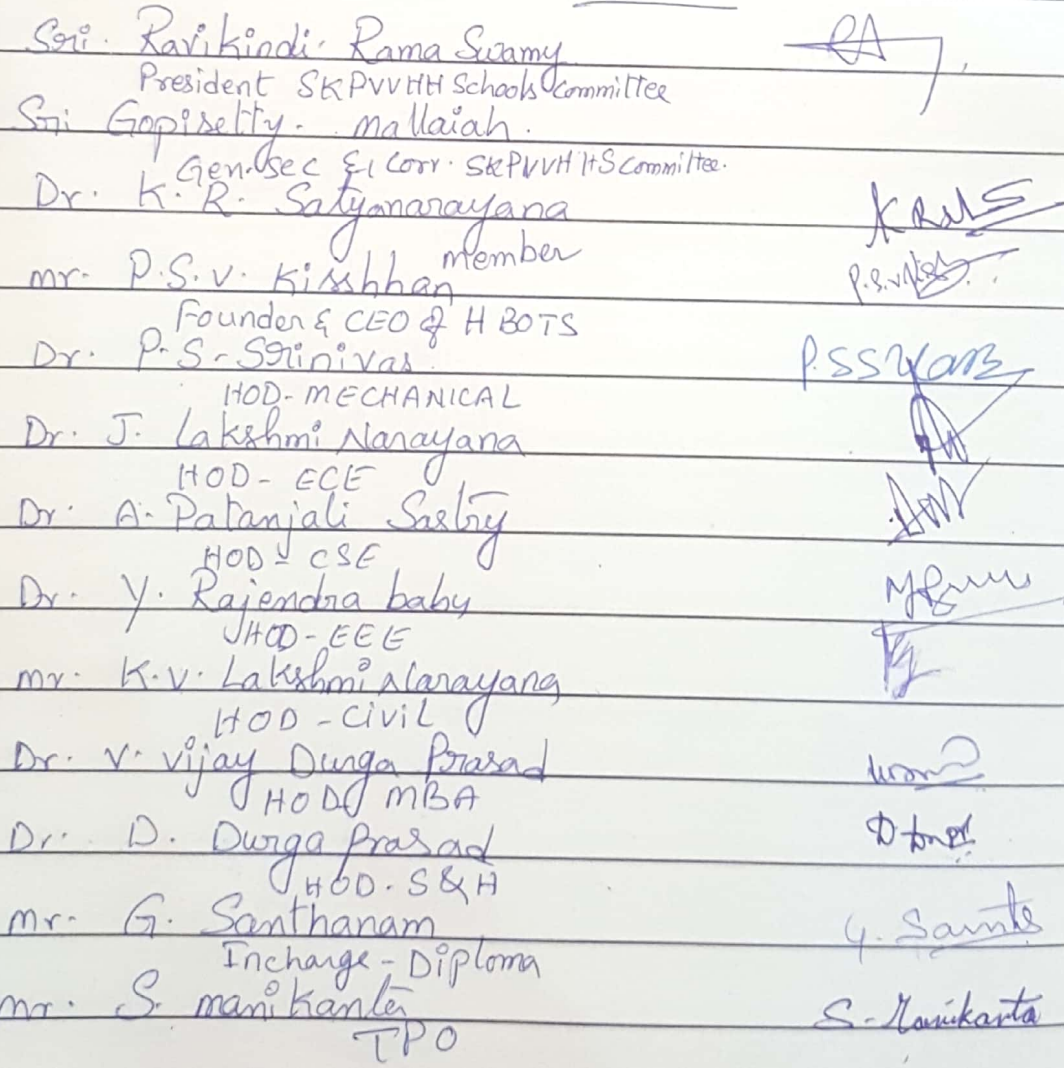 Sri. Ravikindi. Rama Swamy
President SKPVVHH Schools Committee
Sri Gopisetty. mallaiah.
Gen. Sec & Corr. SKPVVH HS Committee.
Dr. K. R. Satyanarayana
member
mr. P.S.V. Kisshhan P.S.V.
Founder & CEO of H BOTS
Dr. P.S. Srinivas
HOD-MECHANICAL
Dr. J. Lakshmi Narayana
HOD - ECE
Dr. A. Patanjali Sastry
HOD - CSE
Dr. Y. Rajendra baby
HOD - EEE
mr. K.V. Lakshmi Narayana
HOD - Civil
Dr. V. Vijay Durga Prasad
HOD MBA
Dr. D. Durga Prasad
HOD. S & H
mr. G. Santhanam G.
Incharge - Diploma
mr. S. manikanta S. Manikanta
TPO